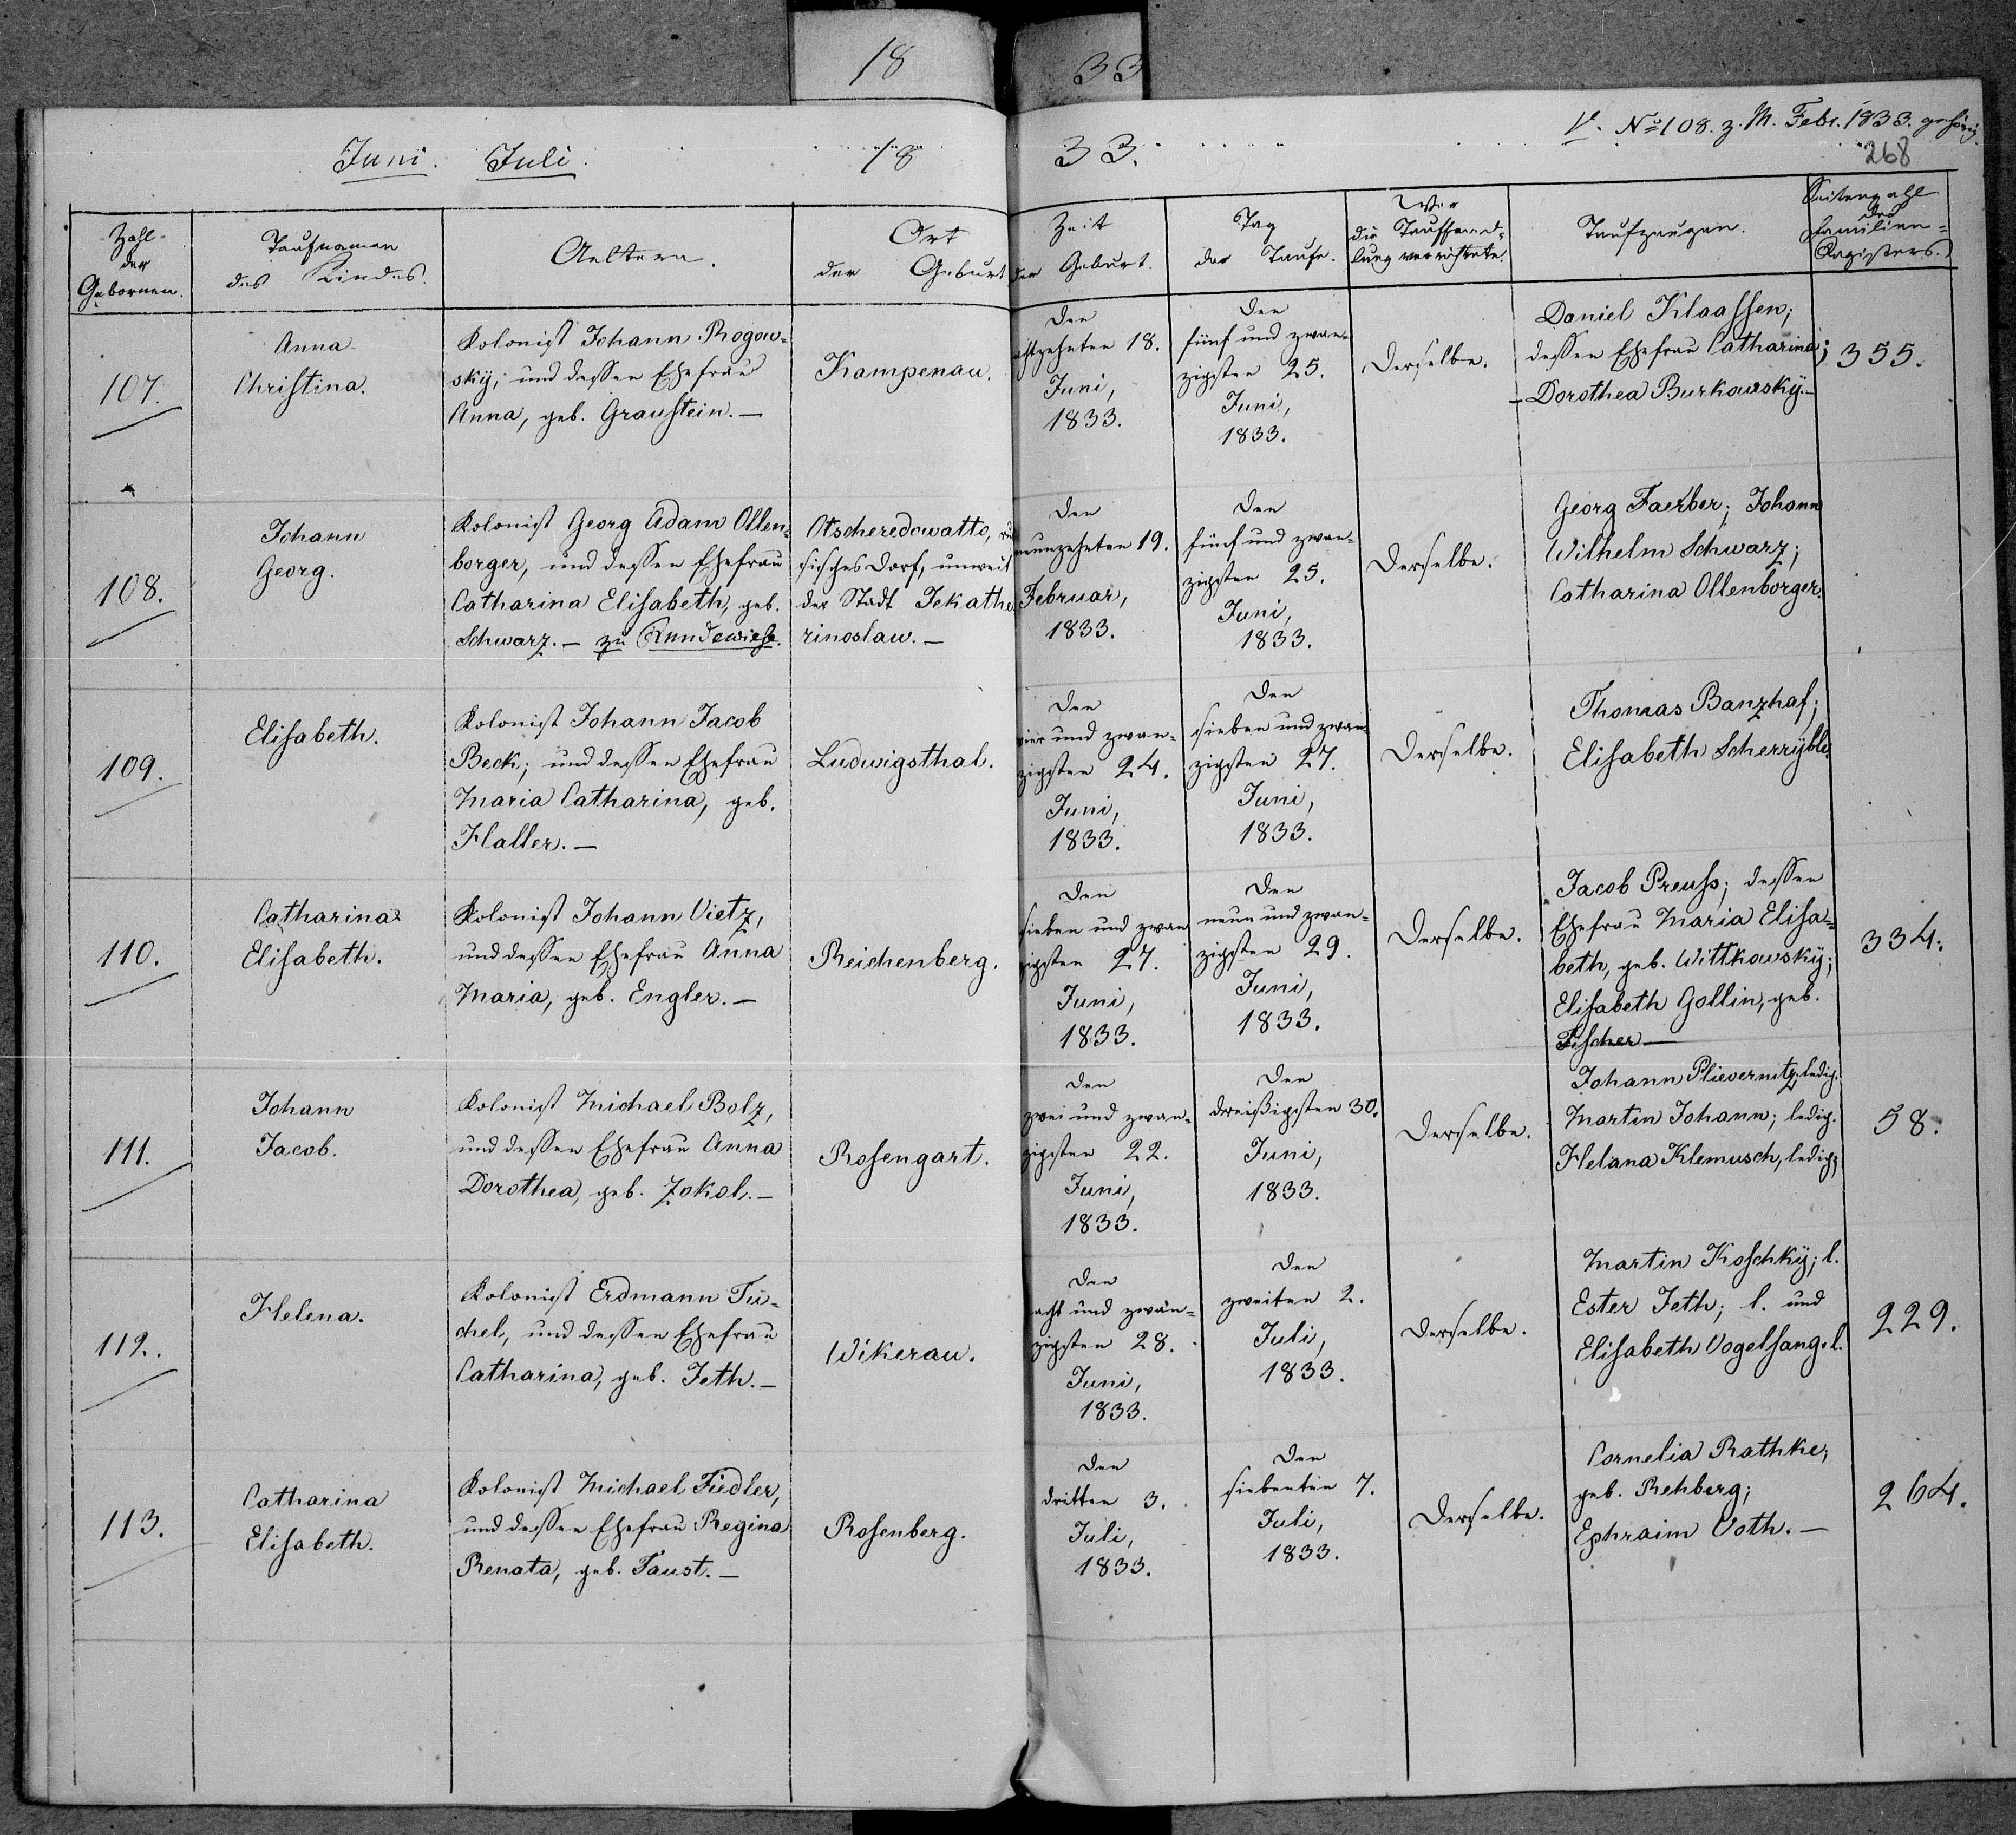 18 33
V. No 108. z. M. Febr. 1833. gehörig.
Juni. Juli. 18 33. 268
Zahl der Gebornen.
Taufnamen des Kindes.
Aeltern.
Ort der Geburt
Zeit der Geburt.
Tag der Taufe.
Wer die Taufhand-
lung verrichtete.
Taufzeugen.
Seitenzahl des Familien-
Registers.
107.
Anna
Christina.
Kolonist Johann Rogow-
sky; und dessen Ehefrau
Anna, geb. Graustein. —
Kampenau.
Den
achtzehnten 18.
Juni,
1833.
Den
fünf und zwan-
zigsten 25.
Juni,
1833.
Derselbe.
Daniel Klaassen;
dessen Ehefrau Catharina;
Dorothea Burkowsky. —
355.
108.
Johann
Georg.
Kolonist Georg Adam Ollen-
borger, und dessen Ehefrau
Catharina Elisabeth, geb.
Schwarz. — zu Rundewiese.
Otscheredowatto, rus
sisches Dorf, unweit
der Stadt Jekathe
rinoslaw. —
Den
neunzehnten 19.
Februar,
1833.
Den
fünf und zwan-
zigsten 25.
Juni,
1833.
Derselbe.
Georg Faerber; Johann
Wilhelm Schwarz;
Catharina Ollenborger.
109.
Elisabeth.
Kolonist Johann Jacob
Beck; und dessen Ehefrau
Maria Catharina, geb.
Haller. —
Ludwigsthal.
Den
vier und zwan-
zigsten 24.
Juni,
1833.
Den
sieben und zwan
zigsten 27.
Juni,
1833.
Derselbe.
Thomas Banzhaf;
Elisabeth Scherryble.
110.
Catharina
Elisabeth.
Kolonist Johann Vietz,
und dessen Ehefrau Anna
Maria, geb. Engler. —
Reichenberg.
Den
sieben und zwan
zigsten 27.
Juni,
1833.
Den
neun und zwan-
zigsten 29.
Juni,
1833.
Derselbe.
Jacob Preuss; dessen
Ehefrau Maria Elisa-
beth, geb. Wittkowsky;
Elisabeth Gollin, geb.
Fischer —
334.
111.
Johann
Jacob.
Kolonist Michael Bolz,
und dessen Ehefrau Anna
Dorothea, geb. Zokol. —
Rosengart.
Den
zwei und zwan-
zigsten 22.
Juni,
1833.
Den
dreißigsten 30.
Juni,
1833.
Derselbe.
Johann Plievernitz, ledig.
Martin Johann; ledig.
Helana Klemusch, ledig;
58.
112.
Helena.
Kolonist Erdmann Tu-
chel, und dessen Ehefrau
Catharina, geb. Jeth. —
Wikerau.
Den
acht und zwan-
zigsten 28.
Juni,
1833.
Den
zweiten 2.
Juli,
1833.
Derselbe.
Martin Koschky; l.
Ester Jeth; l. und
Elisabeth Vogelsang. l.
229.
113.
Catharina
Elisabeth.
Kolonist Michael Fiedler,
und dessen Ehefrau Regina
Renata, geb. Faust. —
Rosenberg.
Den
dritten 3.
Juli,
1833.
Den
siebenten 7.
Juli,
1833.
Derselbe.
Cornelia Rathke,
geb. Rehberg;
Ephraim Voth. —
264.